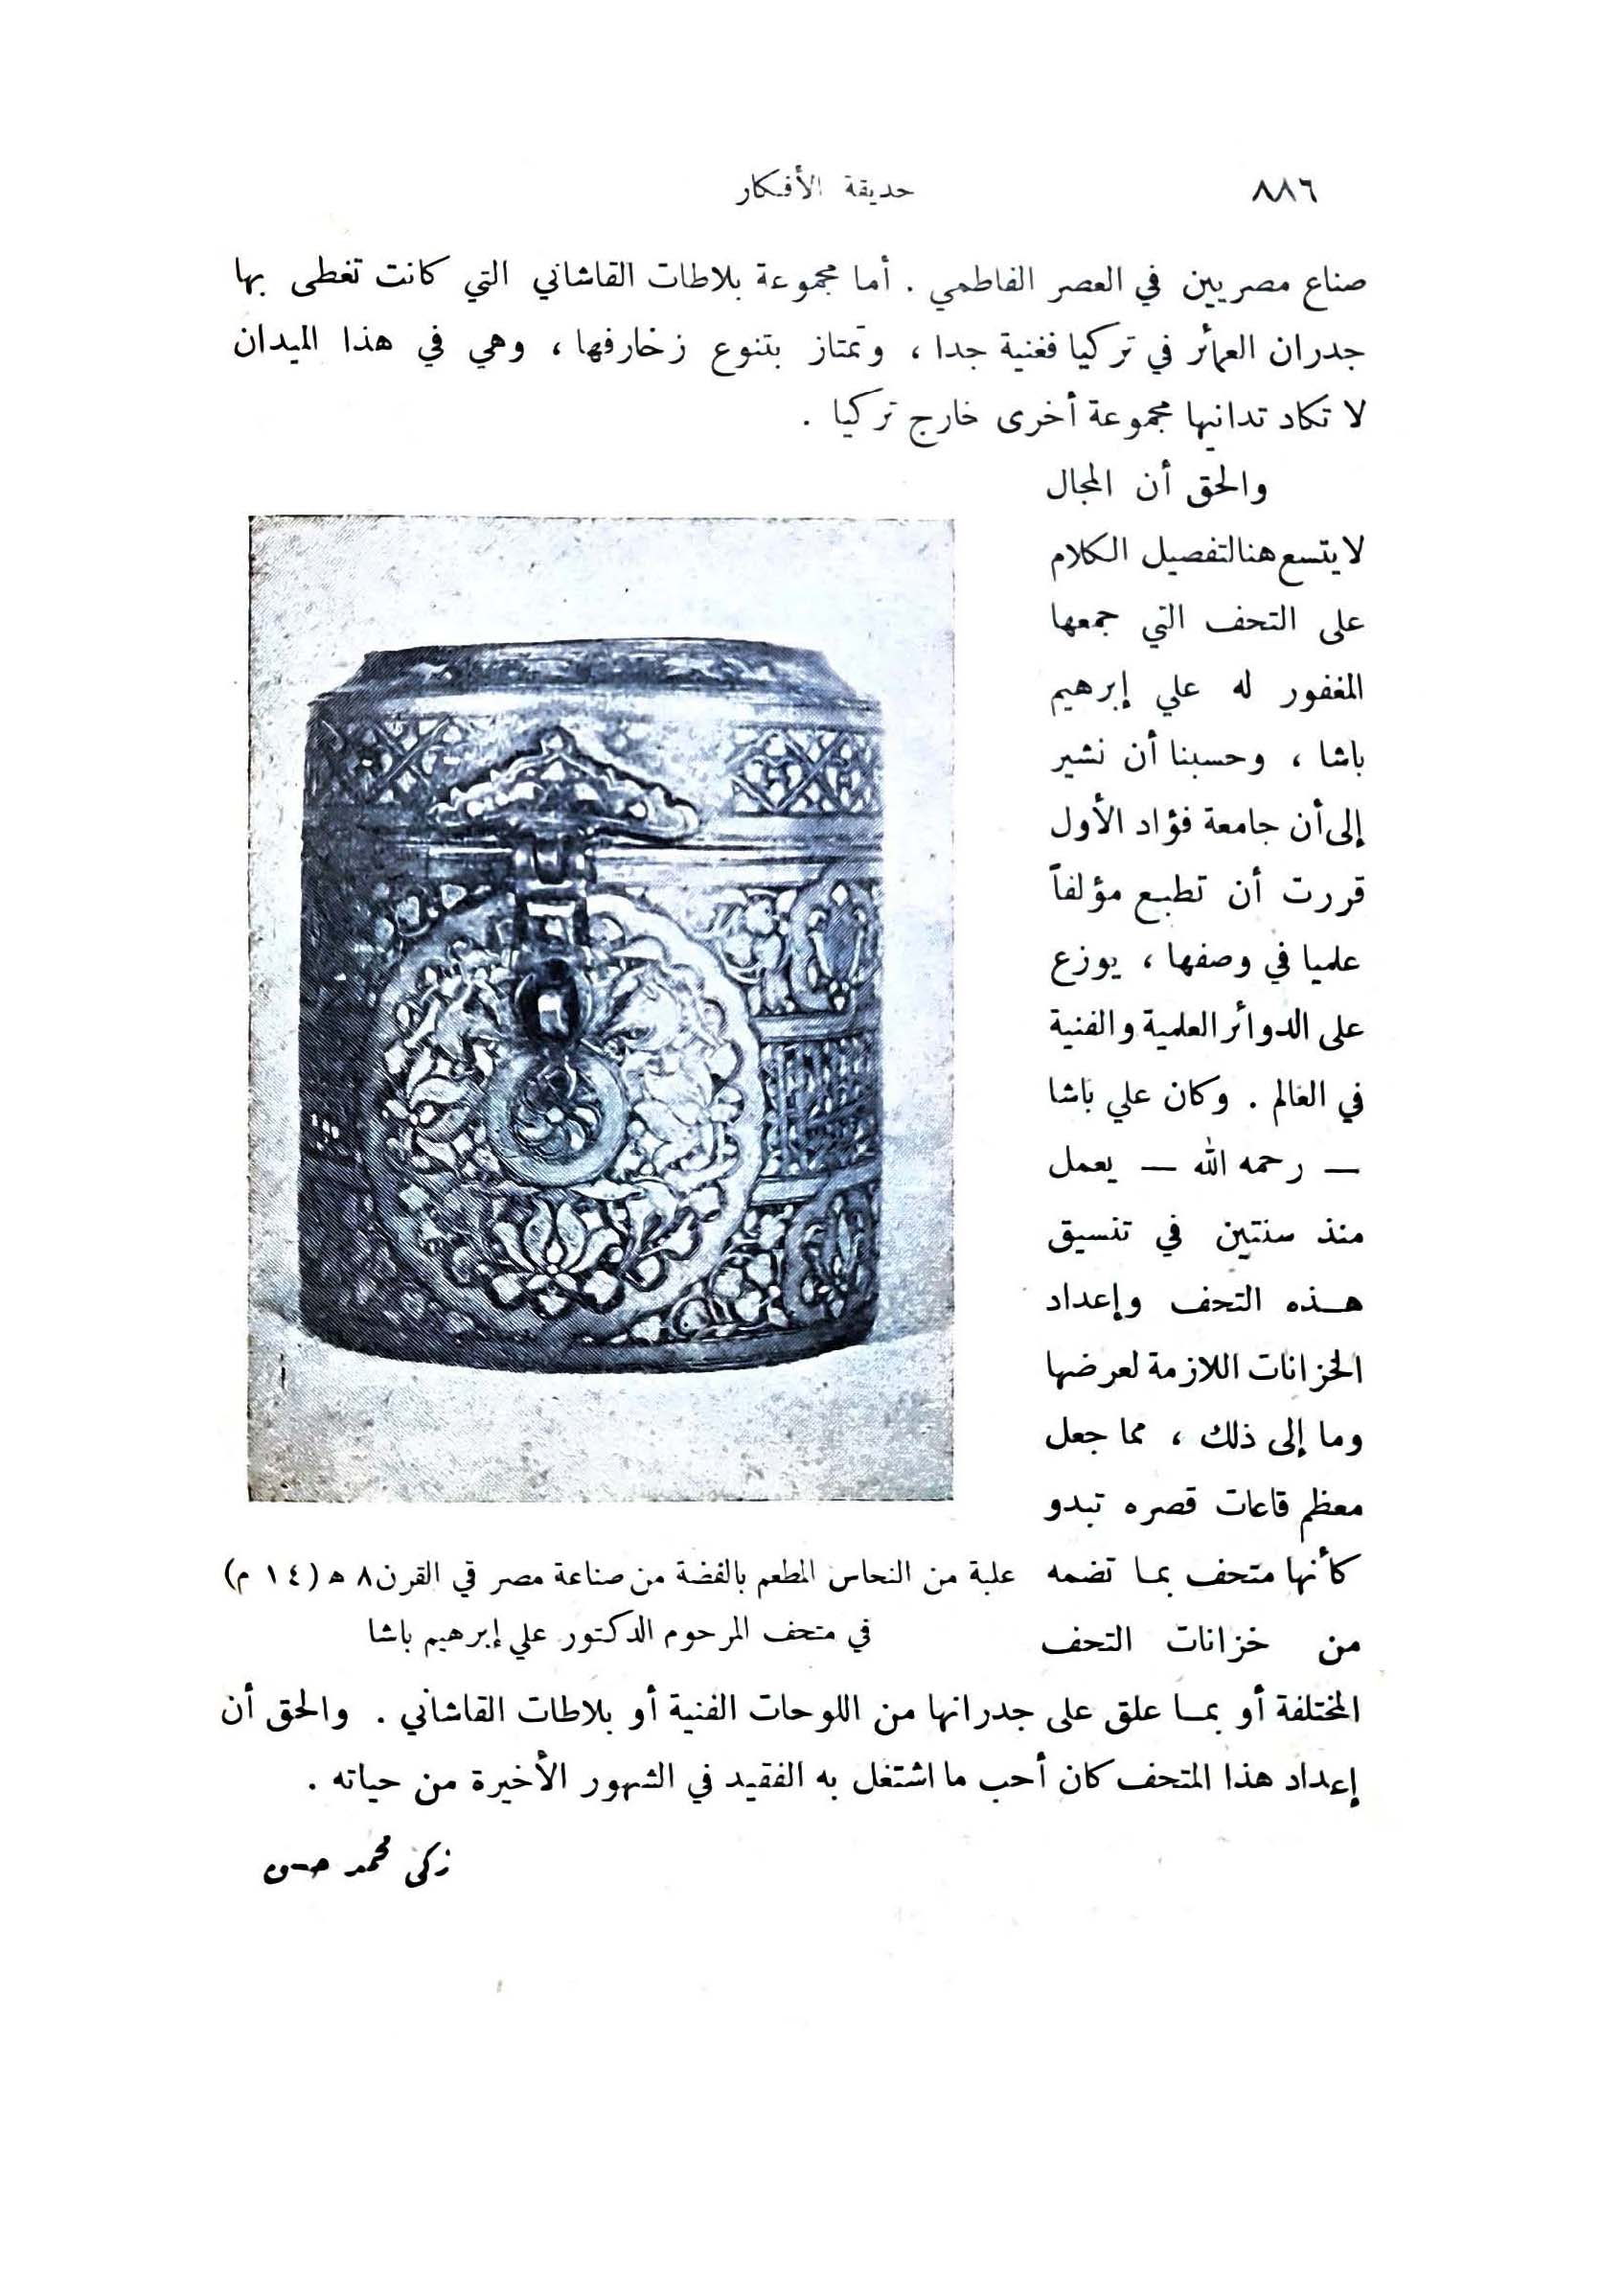 ٨٨٦
حديقة الأفكار
صناع مصريين في العصر الفاطمي . أما مجموعة بلاطات القاشاني التي كانت تغطى بها
جدران العمائر في تركيا فغنية جدا ، وتمتاز بتنوع زخارفها ، وهي في هذا الميدان
لا تكاد تدانيها مجموعة أخرى خارج تركيا .
والحق أن المجال
لا يتسع هنا لتفصيل الكلام
على التحف التي جمعها
المغفور له علي إبرهيم
باشا ، وحسبنا أن نشير
إلى أن جامعة فؤاد الأول
قررت أن تطبع مؤلفاً
علميا في وصفها ، يوزع
على الدوائر العلمية والفنية
في العالم . وكان علي باشا
— رحمه الله — يعمل
منذ سنتين في تنسيق
هـذه التحف وإعداد
الخزانات اللازمة لعرضها
وما إلى ذلك ، مما جعل
معظم قاعات قصره تبدو
كأنها متحف بمـا تضمه
من خزانات التحف
علبة من النحاس المطعم بالفضة من صناعة مصر في القرن ٨ هـ (١٤ م)
في متحف المرحوم الدكتور علي إبرهيم باشا
المختلفة أو بمـا علق على جدرانها من اللوحات الفنية أو بلاطات القاشاني . والحق أن
إعداد هذا المتحف كان أحب ما اشتغل به الفقيد في الشهور الأخيرة من حياته .
زكى محمد حسن